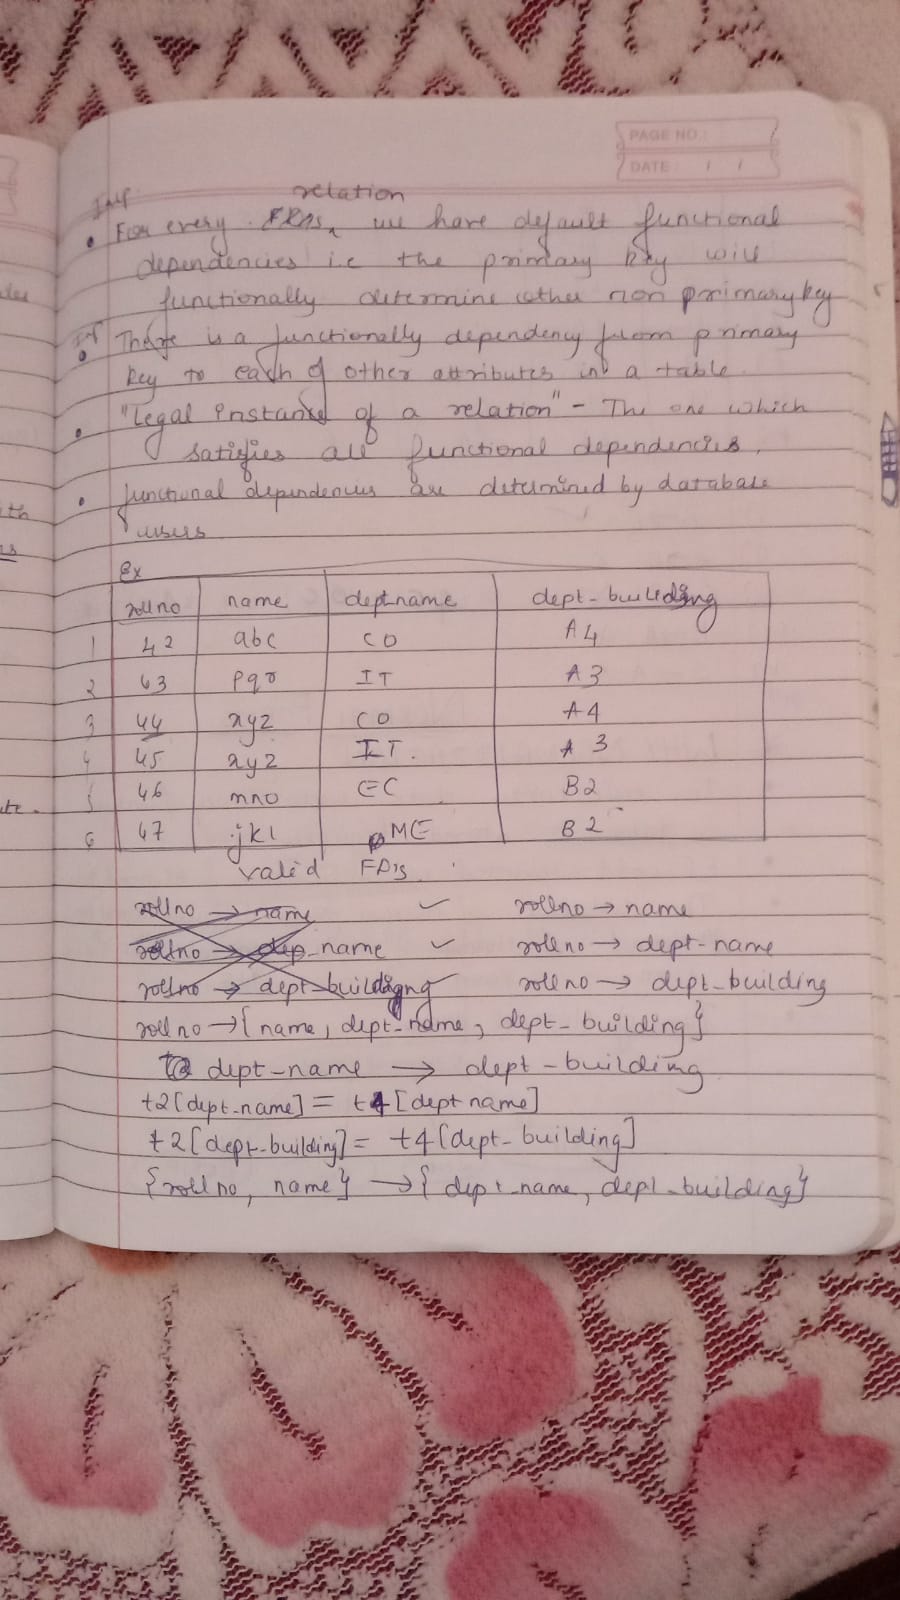 PAGE NO.:
DATE: / /
Imp
relation
• For every FDs, we have default functional
dependencies i.e the primary key will
functionally determine other non primary key
Imp
• There is a functionally dependency from primary
key to each of other attributes in a table
• "Legal instance of a relation" - The one which
satisfies all functional dependencies.
• functional dependencies are determined by database
users
Ex
rollno name deptname dept-building
1 42 abc CO A4
2 43 pqr IT A3
3 44 xyz CO A4
4 45 xyz IT. A3
5 46 mno EC B2
6 47 jkl ME B2
valid FD's
rollno → name ✓ rollno → name
rollno → dep_name ✓ rollno → dept-name
rollno → dept-building ✓ rollno → dept_building
rollno → {name, dept_name, dept_building}
dept_name → dept-building
t2[dept-name] = t4[dept name]
t2[dept-building] = t4[dept-building]
{rollno, name} → {dept_name, dept_building}